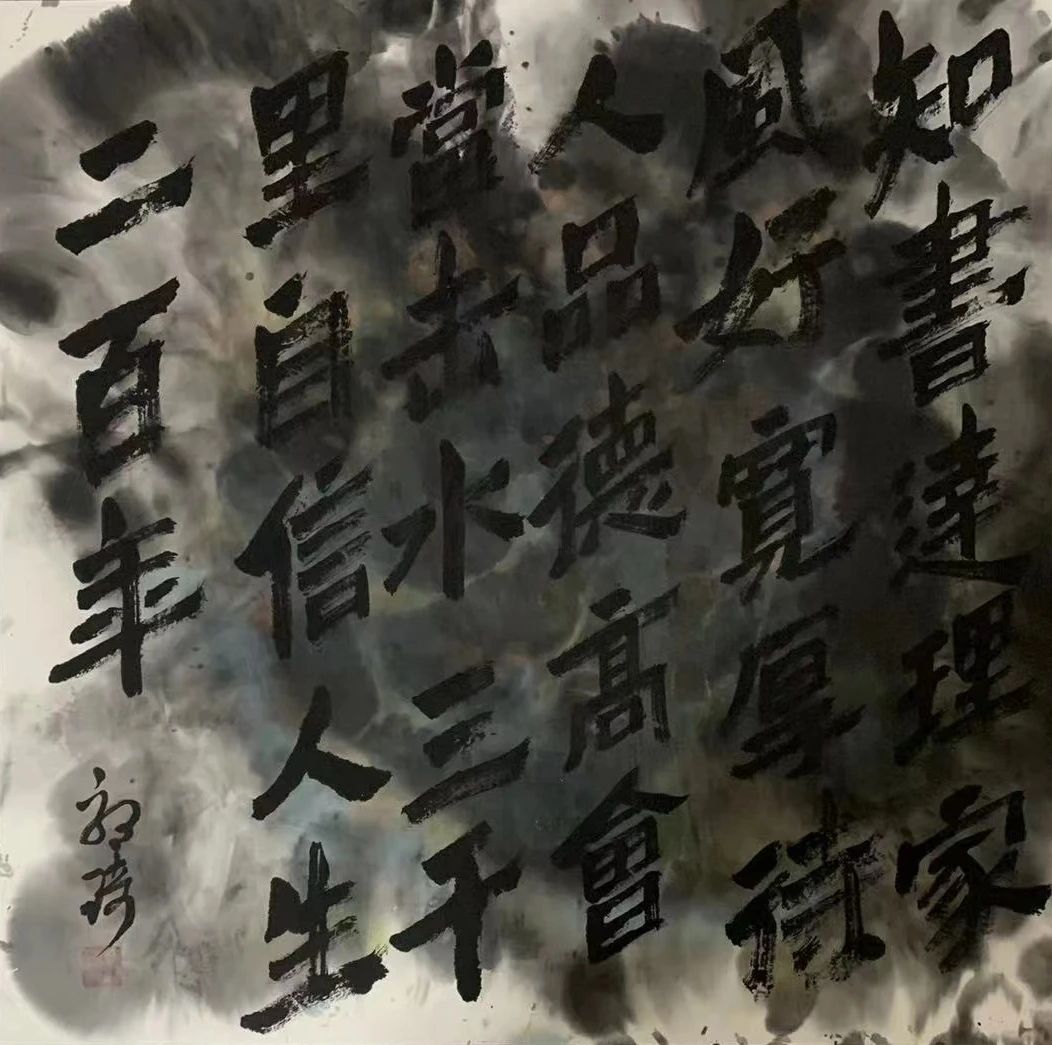 知書達理家
風好寬厚待
人品德高會
當击水三千
里自信人生
二百年